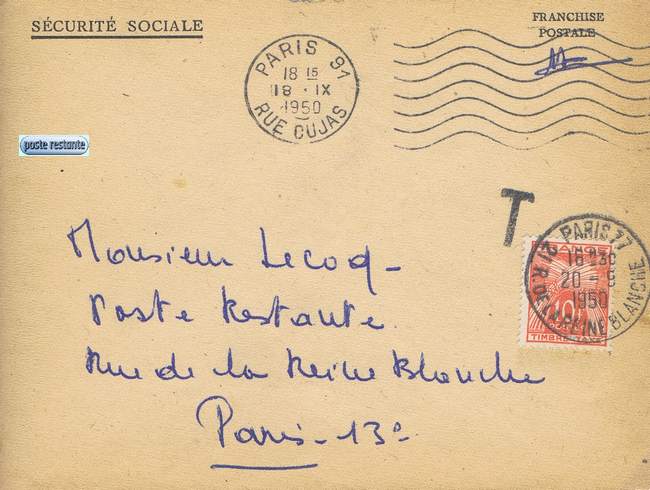 SÉCURITÉ SOCIALE
FRANCHISE
POSTALE
PARIS 91
18 15
18 · IX
1950
RUE CUJAS
poste restante
T
PARIS 77
16 30
20 - 9
1950
21 R. DE LA REINE BLANCHE
10F
TIMBRE TAXE
Monsieur Lecoq -
Poste Restante
Rue de la Reine Blanche
Paris - 13e